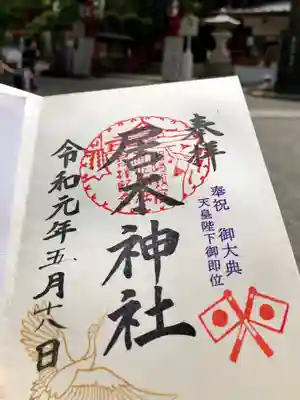 奉拝
奉祝 御大典
天皇陛下御即位
居木神社
令和元年五月十八日